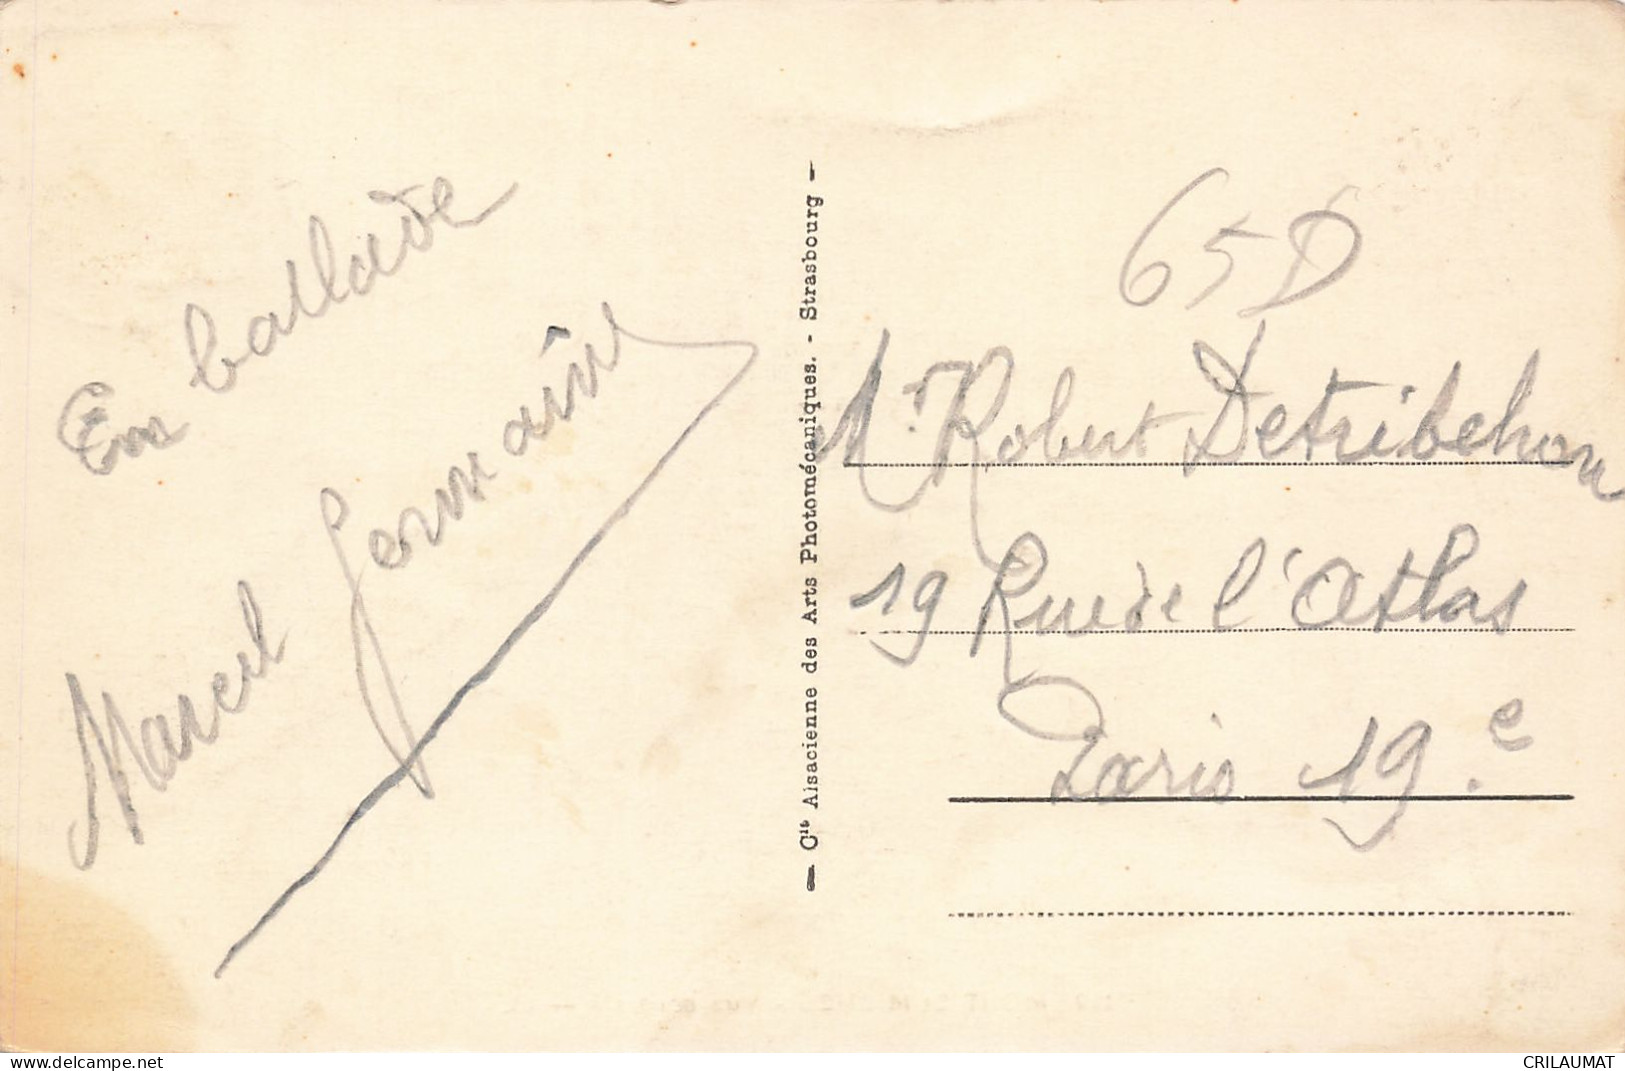 En ballade
Marcel Germaine
— Cie Alsacienne des Arts Photomécaniques. - Strasbourg —
65D
Mr Robert Detribehou
19 Rue de l'Atlas
Paris 19.e
delcampe.net
CRILAUMAT